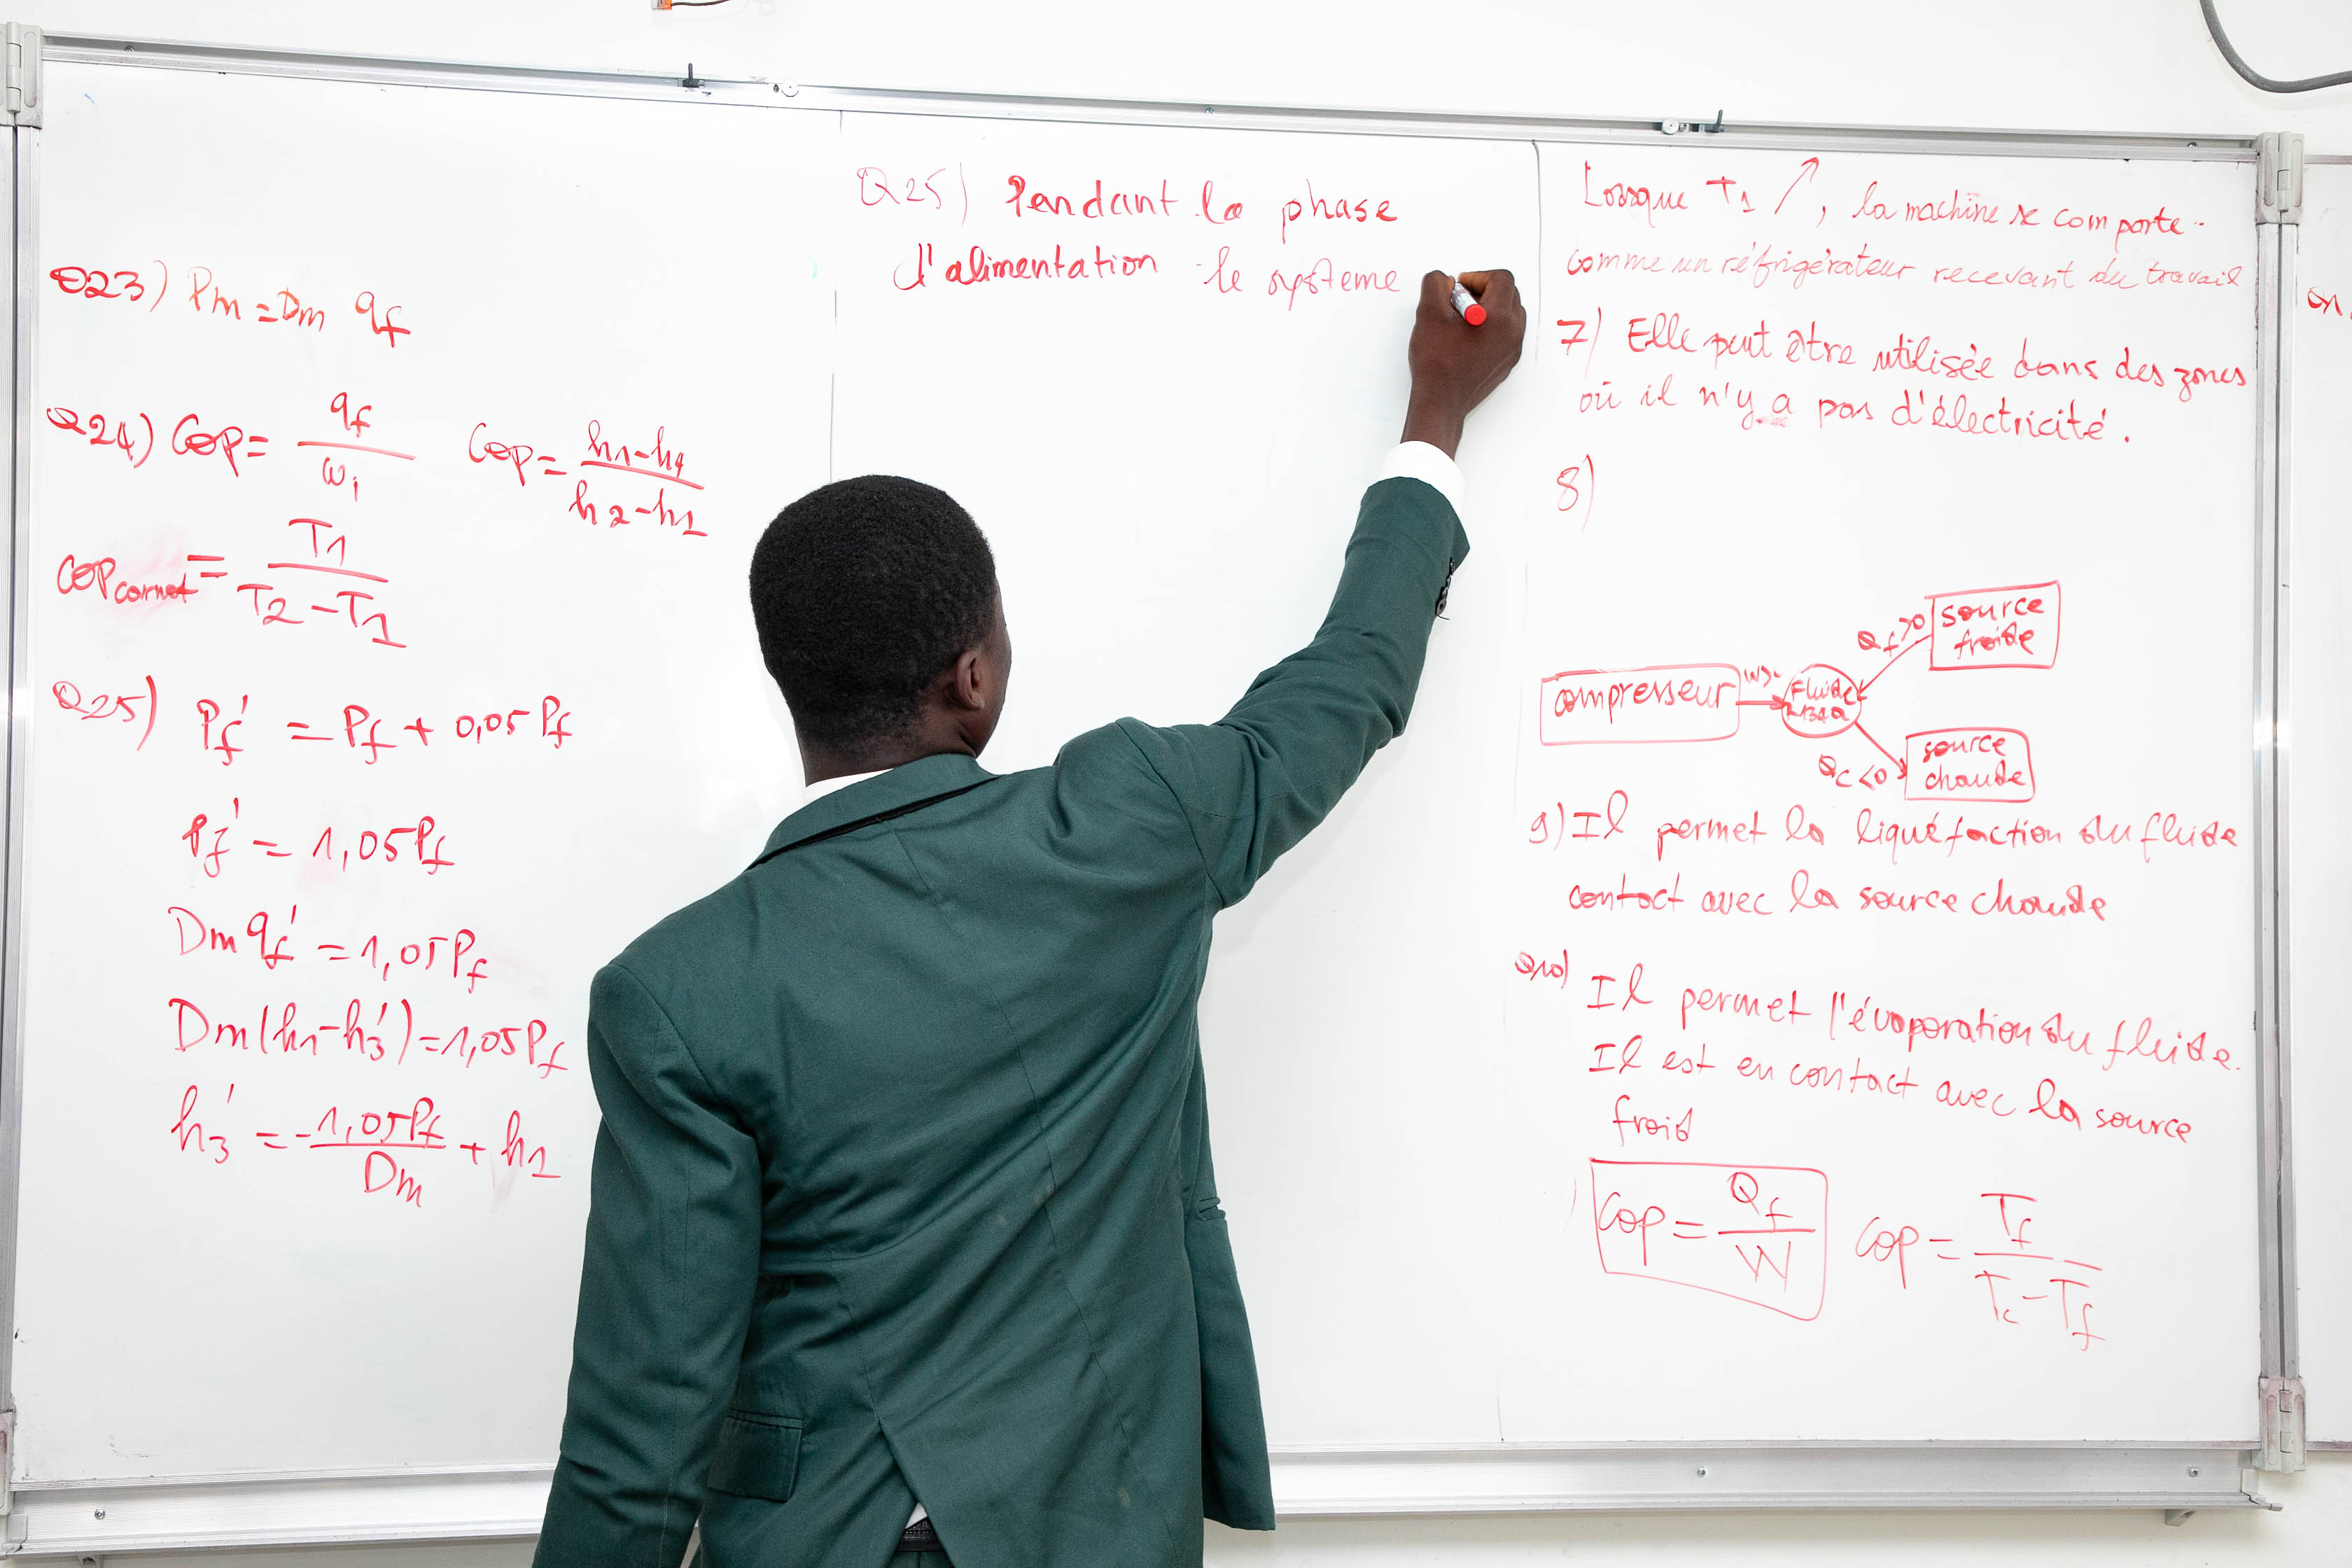 Q23) Pm = Dm qf
Q24) COP = qf / wi   COP = h1-h4 / h2-h1
COP carnot = T1 / T2-T1
Q25) Pf' = Pf + 0,05 Pf
Pf' = 1,05Pf
Dm qf' = 1,05 Pf
Dm(h1-h3') = 1,05 Pf
h3' = -1,05Pf / Dm + h1
Q25) Pendant la phase
d'alimentation le systeme
Lorsque T1 ↗, la machine se comporte
comme un réfrigérateur recevant du travail
7) Elle peut être utilisée dans des zones
où il n'y a pas d'électricité.
8)
Qf>0 source
froide
compresseur W> Fluide
R134a
Qc<0 source
chaude
9) Il permet la liquéfaction du fluide
contact avec la source chaude
Q10) Il permet l'évaporation du fluide.
Il est en contact avec la source
froid
) COP = Qf / W   COP = Tf / Tc-Tf